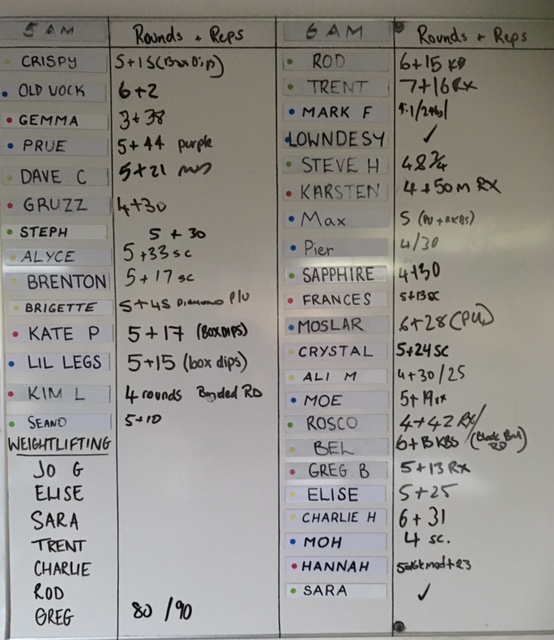 5 AM Rounds + Reps
CRISPY 5+15 (Box Dip)
OLD VOCK 6+2
GEMMA 3+38
PRUE 5+44 purple
DAVE C 5+21
GRUZZ 4+30
STEPH 5 + 30
ALYCE 5+33 sc
BRENTON 5+17 sc
BRIGETTE 5+45 DIAMOND P/U
KATE P 5+17 (BOX DIPS)
LIL LEGS 5+15 (box dips)
KIM L 4 rounds Banded RD
SEANO 5+10
WEIGHTLIFTING
JO G
ELISE
SARA
TRENT
CHARLIE
ROD
GREG 80/90
6 AM Rounds + Reps
ROD 6+15 KB
TRENT 7+16 RX
MARK F
LOWNDESY ✓
STEVE H 4 & 3/4
KARSTEN 4+50m RX
Max 5
Pier 4/30
SAPPHIRE 4+30
FRANCES 5+13sc
MOSLAR 6+28 (PU)
CRYSTAL 5+24 sc
ALI M 4+30/25
MOE 5+19 rx
ROSCO 4+42 RX/
BEL 6+13 KBS
GREG B 5+13 Rx
ELISE 5+25
CHARLIE H 6+31
MOH 4 sc.
HANNAH
SARA ✓